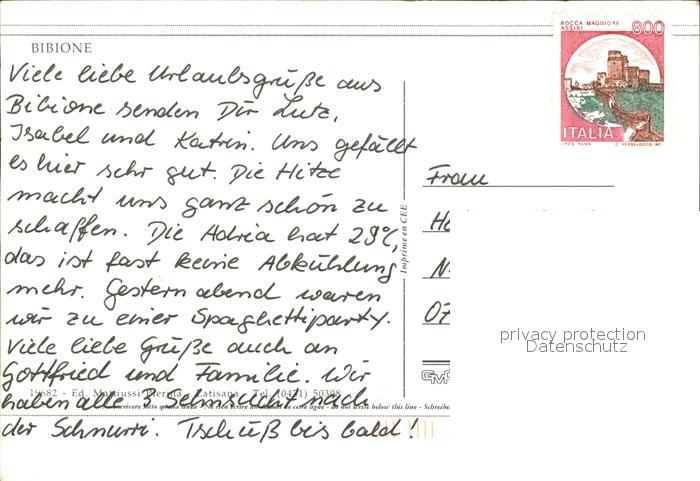 BIBIONE
Viele liebe Urlaubsgrüße aus
Bibione senden Dir Lutz,
Isabel und Katrin. Uns gefällt
es hier sehr gut. Die Hitze
macht uns ganz schön zu
schaffen. Die Adria hat 29°C,
das ist fast keine Abkühlung
mehr. Gestern abend waren
wir zu einer Spaghettiparty.
Viele liebe Grüße auch an
Gottfried und Familie. Wir
haben alle 3 Sehnsucht nach
der Schnurri. Tschüß bis bald!
Ed. Mattiussi Pierina - Latisana - Tel. (0431) 50308
ne rien écrire au dessous de cette ligne - do not write below this line - Schreiben
Imprimé en CEE
ROCCA MAGGIORE
ASSISI
800
ITALIA
Frau
07
privacy protection
Datenschutz